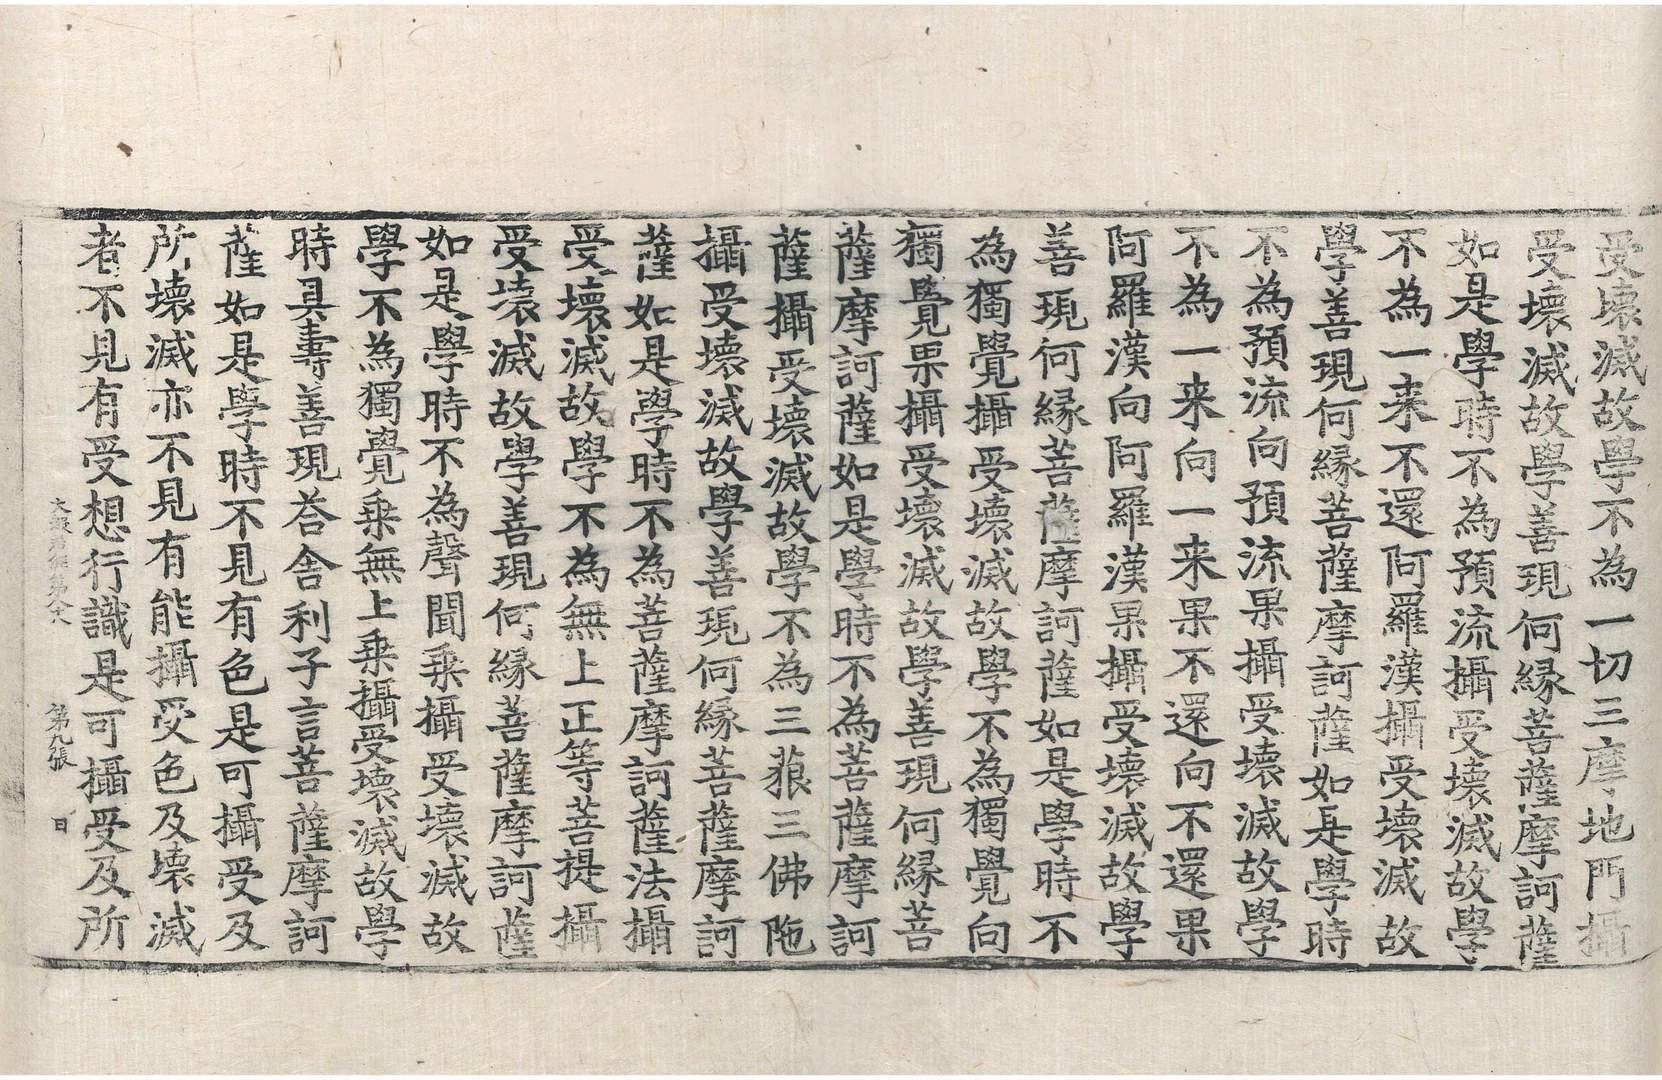 受壞滅故學不為一切三摩地門攝
受壞滅故學善現何縁菩薩摩訶薩
如是學時不為預流攝受壞滅故學
不為一来不還阿羅漢攝受壞滅故
學善現何縁菩薩摩訶薩如是學時
不為預流向預流果攝受壞滅故學
不為一来向一来果不還向不還果
阿羅漢向阿羅漢果攝受壞滅故學
善現何縁菩薩摩訶薩如是學時不
為獨覺攝受壞滅故學不為獨覺向
獨覺果攝受壞滅故學善現何縁菩
薩摩訶薩如是學時不為菩薩摩訶
薩攝受壞滅故學不為三藐三佛陁
攝受壞滅故學善現何縁菩薩摩訶
薩如是學時不為菩薩摩訶薩法攝
受壞滅故學不為無上正等菩提攝
受壞滅故學善現何縁菩薩摩訶薩
如是學時不為聲聞乗攝受壞滅故
學不為獨覺乗無上乗攝受壞滅故學
時具壽善現荅舍利子言菩薩摩訶
薩如是學時不見有色是可攝受及
所壞滅亦不見有能攝受色及壞滅
者不見有受想行識是可攝受及所
第九張 日